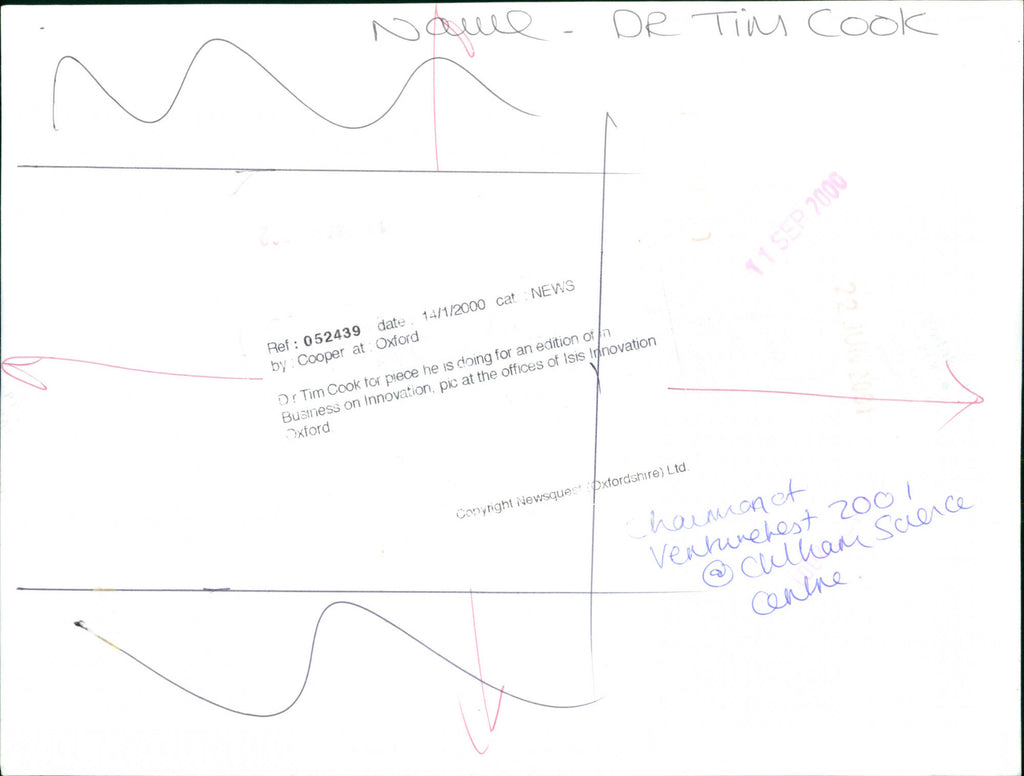 Name - DR TIM COOK
11 SEP 2000
22 JUN 2001
Ref : 052439 date : 14/1/2000 cat : NEWS
by : Cooper at : Oxford
Dr Tim Cook for piece he is doing for an edition of in
Business on Innovation, pic at the offices of Isis Innovation
Oxford
Copyright Newsquest (Oxfordshire) Ltd.
Chairman of
Venturefest 2001
@ Culham Science
Centre.